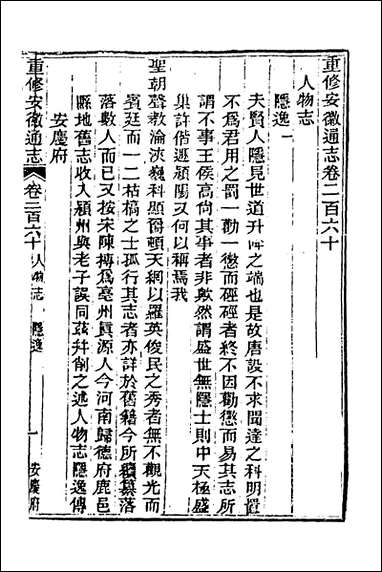 重修安徽通志卷二百六十
人物志
隱逸一
夫賢人隱見世道升降之端也是故唐設不求聞達之科明置
不爲君用之罰一勸一懲而硜硜者終不因勸懲而易其志所
謂不事王侯高尚其事者非歟然謂盛世無隱士則中天極盛
集許偕遯潁陽又何以稱焉我
聖朝聲教淪浹巍科顯爵頓天網以羅英俊民之秀者無不觀光而
賓廷而一二枯槁之士孤行其志者亦詳於舊籍今所纘纂落
落數人而已又按宋陳摶爲亳州眞源人今河南歸德府鹿邑
縣地舊志收入潁州與老子誤同茲幷削之述人物志隱逸傳
安慶府
重修安徽通志
卷二百六十
人物志
隱逸
一
安慶府